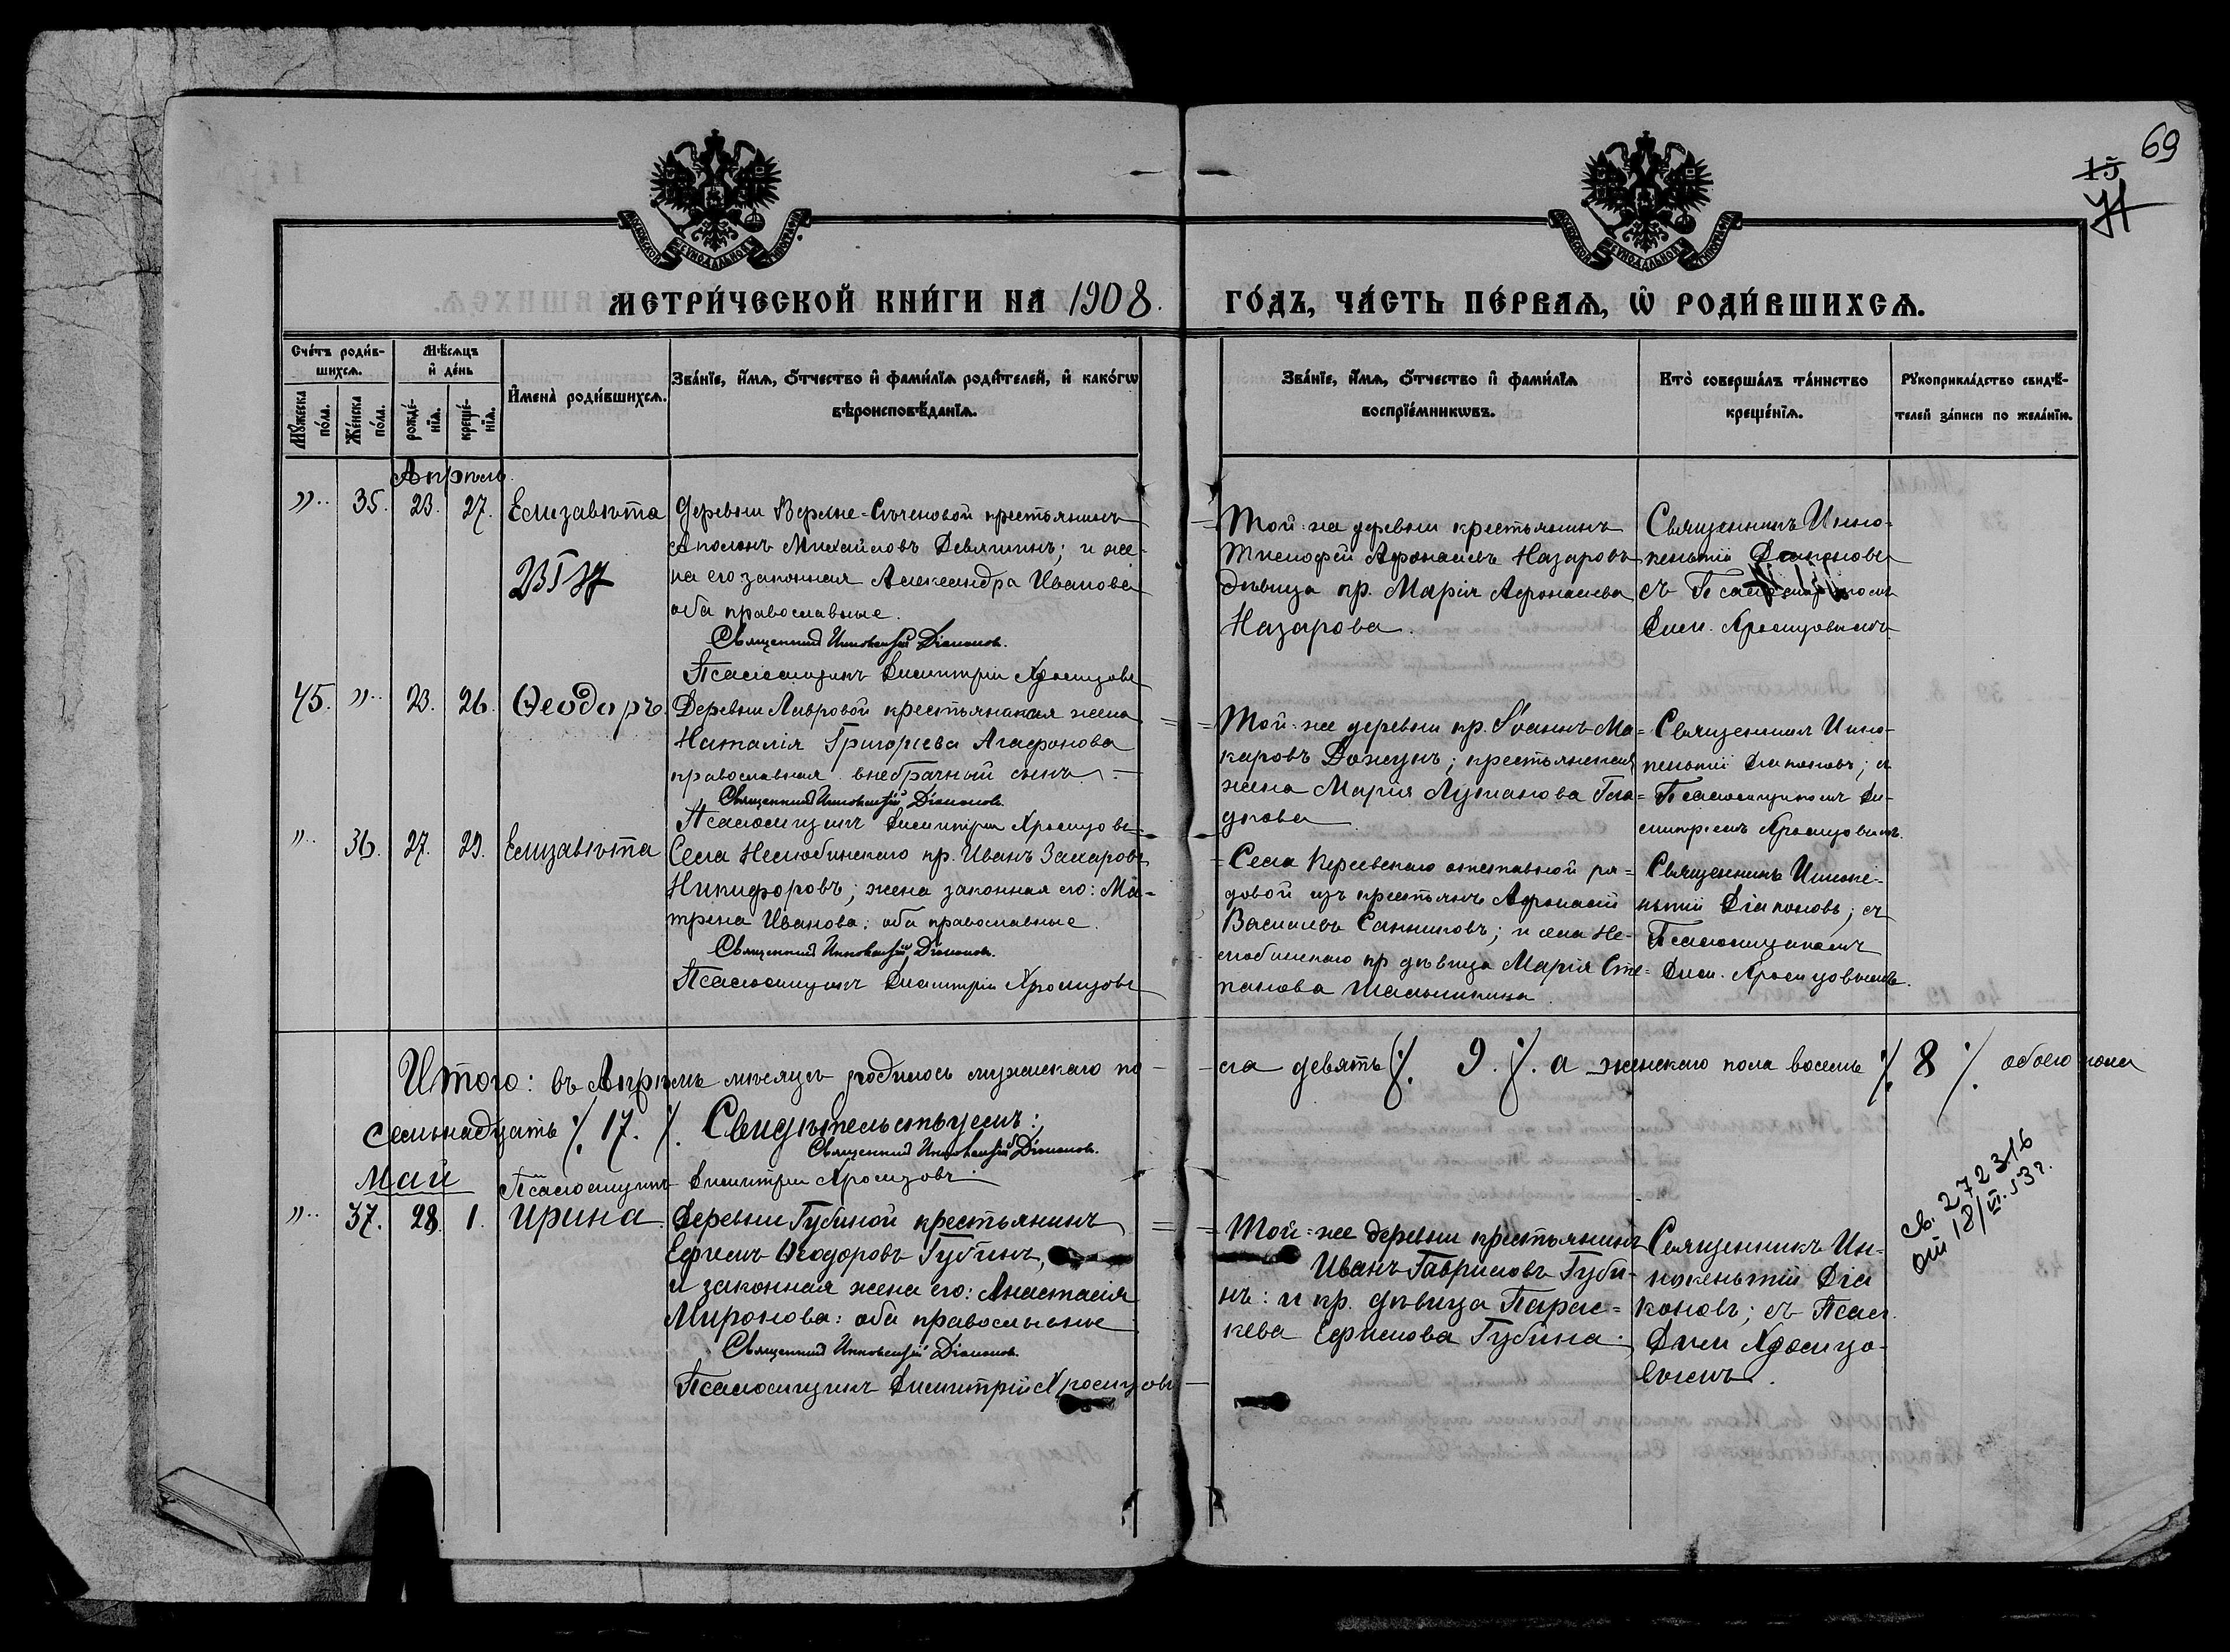 69
15
МЕТРИ́ЧЕСКОЙ КНИ́ГИ НА 1908.
ГО́ДЪ, ЧА́СТЬ ПЕ́РВАѦ, Ѡ҆ РОДИ́ВШИХСѦ.
Сче́тъ роди́в-
шихсѧ.
Мꙋ́жеска по́ла.
Же́нска по́ла.
Мѣ́сѧцъ
и҆ де́нь
рожде́-
нїѧ.
креще́-
нїѧ.
И҆мена̀ роди́вшихсѧ.
Зва́нїе, и҆́мѧ, ѻ҆́тчество и҆ фами́лїѧ роди́телей, и҆ како́гѡ
вѣроисповѣ́данїѧ.
Зва́нїе, и҆́мѧ, ѻ҆́тчество и҆ фами́лїѧ
воспрїе́мникѡвъ.
Кто̀ соверша́лъ та́инство
креще́нїѧ.
Рꙋкоприкла́дство свидѣ́-
телей за́писи по жела́нїю.
Апрѣль.
"
35.
23.
27.
Елизавѣта
Деревни Верхне-Сѣченовой крестьянинъ
Аполонъ Михайловъ Девяшинъ; и же-
на его законная Александра Иванова
оба православные.
Священникъ Иннокентій Діаконовъ.
Псаломщикъ Димитрій Хромцовъ
Той-же деревни крестьянинъ
Тимофей Афонасіевъ Назаровъ
дѣвица кр. Марія Афонасіева
Назарова.
Священникъ Инно-
кентій Діаконовъ
съ Псаломщикомъ
Дим. Хромцовымъ
45.
"
23.
26.
Ѳеодоръ.
Деревни Лавровой крестьянская жена
Наталія Григоріева Агафонова
православная внебрачный сынъ.
Священникъ Иннокентій Діаконовъ.
Псаломщикъ Димитрій Хромцовъ
Той-же деревни кр. Іоаннъ Ма-
каровъ; крестьянская
жена Марія
Священникъ Инно-
кентій Діаконовъ; съ
Псаломщикомъ Ди-
митріемъ Хромцовымъ.
"
36.
27.
29.
Елизавѣта
Села Нелюбинскаго кр. Иванъ Захаровъ
Никифоровъ; жена законная его: Ма-
трена Иванова: оба православные.
Священникъ Иннокентій Діаконовъ.
Псаломщикъ Димитрій Хромцовъ
Села отставной ря-
довой изъ крестьянъ Афонасій
Васильевъ Санниковъ; и села Не-
любинскаго кр дѣвица Марія Сте-
панова
Священникъ Инноке-
нтій Діаконовъ; съ
Псаломщикомъ
Дим. Хромцовымъ.
Итого: въ Апрѣлѣ мѣсяцѣ родилось мужскаго по-
ла девять ٪ 9. ٪. а женскаго пола восемь ٪ 8 ٪ обоего пола
семьнадцать ٪ 17. ٪. Свидѣтельствуемъ:
Священникъ Иннокентій Діаконовъ.
Псаломщикъ Димитрій Хромцовъ
Май
"
37.
28.
1.
Ирина.
Деревни Губиной крестьянинъ
Ефимъ Ѳеодоровъ Губинъ,
и законная жена его: Анастасія
Миронова: оба православные
Священникъ Иннокентій Діаконовъ.
Псаломщикъ Димитрій Хромцовъ
Той-же деревни крестьянинъ
Иванъ Гавриловъ Губи-
нъ: и кр. дѣвица Парас-
кева Ефимова Губина.
Священникъ Ин-
нокентій Діа-
коновъ; съ Псал.
Дим Хромцо-
вымъ.
св. 272316
от 18/VI.53г.